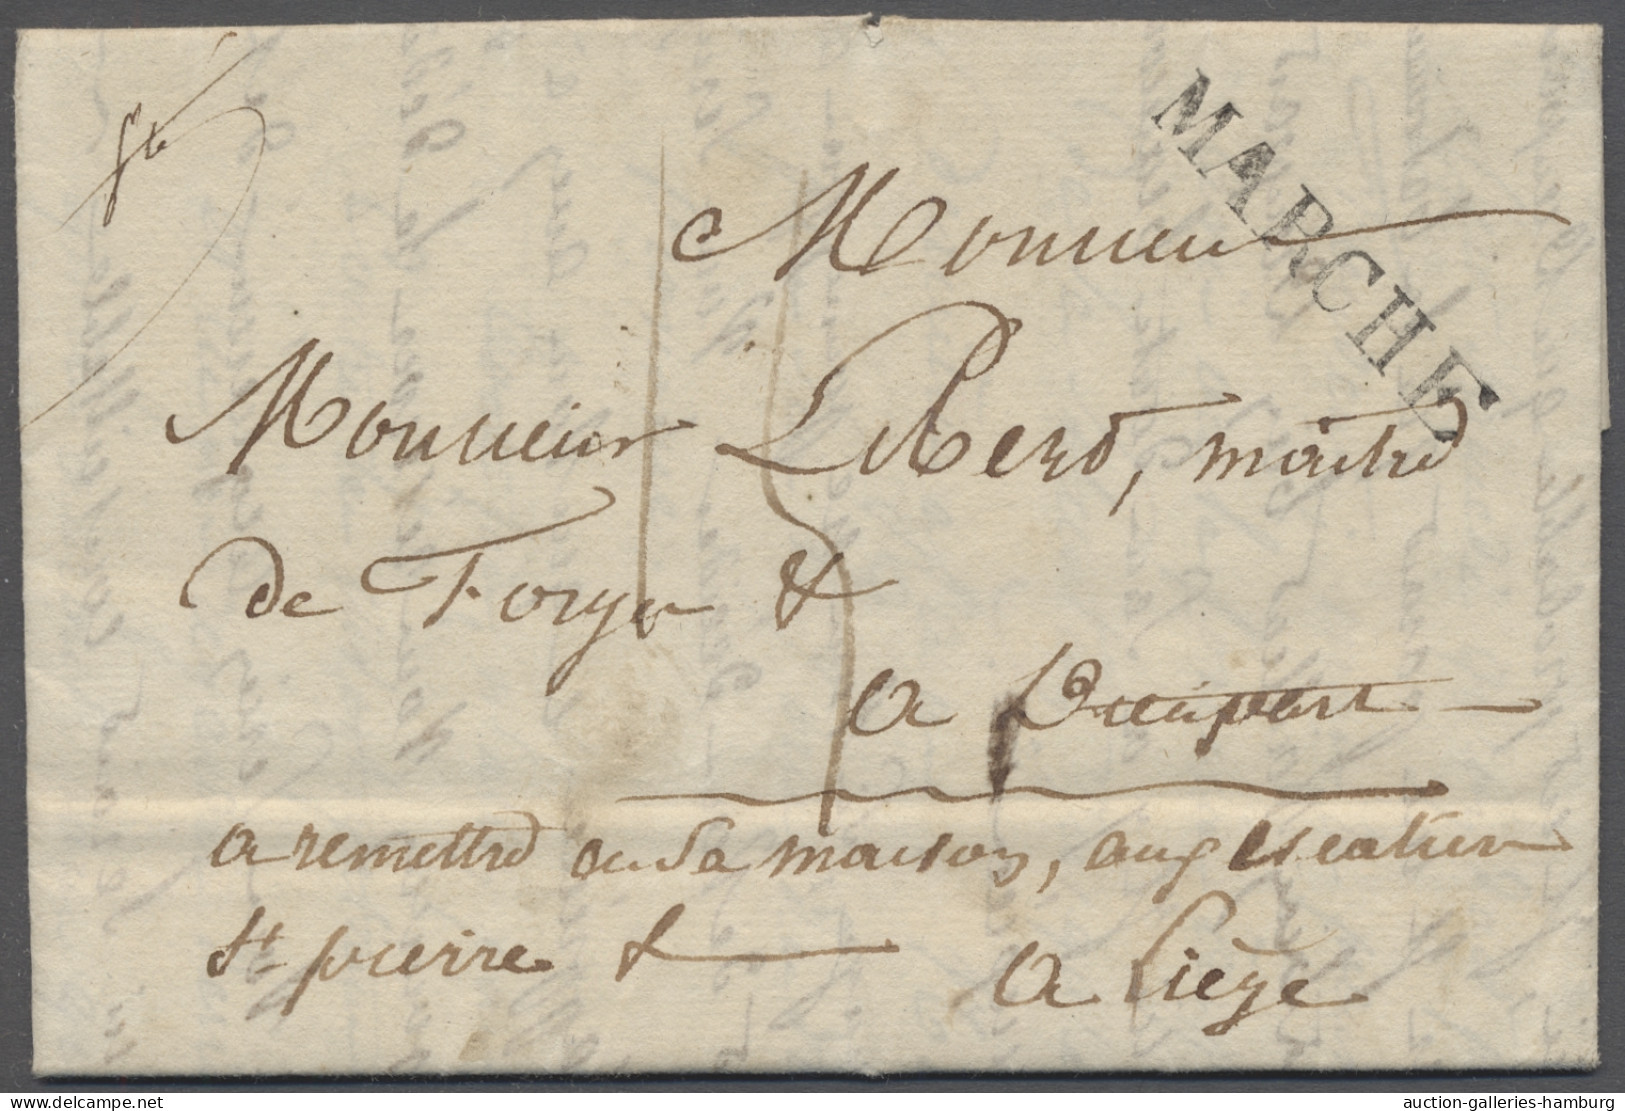 MARCHE
Monsieur
Monsieur Libert, maitre
de Forge &
a
a remettre en Sa maison, aux escalier
St pierre &
a Liège
www.delcampe.net
auction-galleries-hamburg